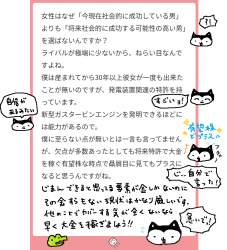 女性はなぜ「今現在社会的に成功している男」
よりも「将来社会的に成功する可能性の高い男」
を選ばないんですか？
ライバルが極端に少ないから、ねらい目なんで
すよね。
僕は産まれてから30年以上彼女が一度も出来た
ことが無いのですが、発電装置関連の特許を持
っています。
新型ガスタービンエンジンを発明できるほどに
は能力があるので、
僕に至らない点が無いとは一言も言ってません
が、欠点が多数あったとしても将来特許で大金
を稼ぐ有望株な時点で贔屓目に見てもプラスに
なると思うんですがね。
じまんできると思ってる要素が金しかないのに
その金すらもない現状はかなり厳しいです。
他のことでカバーする気が全くないなら
早く大金を稼ぎましょう!!
すごいョ!
有望株
で
プラス
じ…自分で
言った!
急いで!